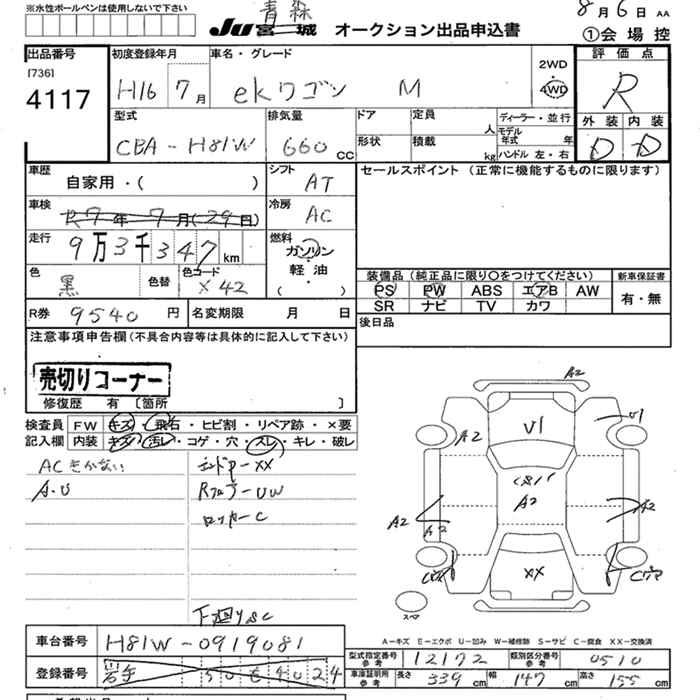 ※水性ボールペンは使用しないで下さい
青森
JU宮城 オークション出品申込書
8月6日 AA
①会場控
出品番号
[736]
4117
初度登録年月
H16 7月
車名・グレード
ekワゴン M
2WD
・
4WD
評価点
R
外装 内装
D D
型式
CBA-H81W
排気量
660 CC
ドア
形状
定員 人
積載 kg
ディーラー・並行
モデル年式 年
ハンドル 左・右
車歴
自家用・( )
シフト
AT
セールスポイント (正常に機能するものに限ります)
車検
R7年7月(29日)
冷房
AC
走行
9万3千347km
燃料
ガソリン
軽油
( )
色
黒
色替
色コード
X42
装備品(純正品に限り○をつけてください)
PS PW ABS エアB AW
SR ナビ TV カワ
新車保証書
有・無
R券 9540円
名変期限 月 日
後日品
注意事項申告欄(不具合内容等は具体的に記入して下さい)
売切りコーナー
修復歴 有 〔箇所 〕
検査員記入欄
FW キズ・飛石・ヒビ割・リペア跡・×要
内装 キズ・汚レ・コゲ・穴・スレ・キレ・破レ
ACきかない
A.U
エンドP-XX
Rフロアー UW
ロッカーC
下廻りSC
A2
V1
U1
A2
A2
A2
A2
A2
XX
C穴
スペア
A-キズ E-エクボ U-凹み W-補修跡 S-サビ C-腐食 XX-交換済
車台番号 H81W-0919081
登録番号 岩手 50 6 4024
型式指定番号参考 12172
類別区分番号参考 0510
車庫証明用参考 長さ 339cm 幅 147cm 高さ 155cm